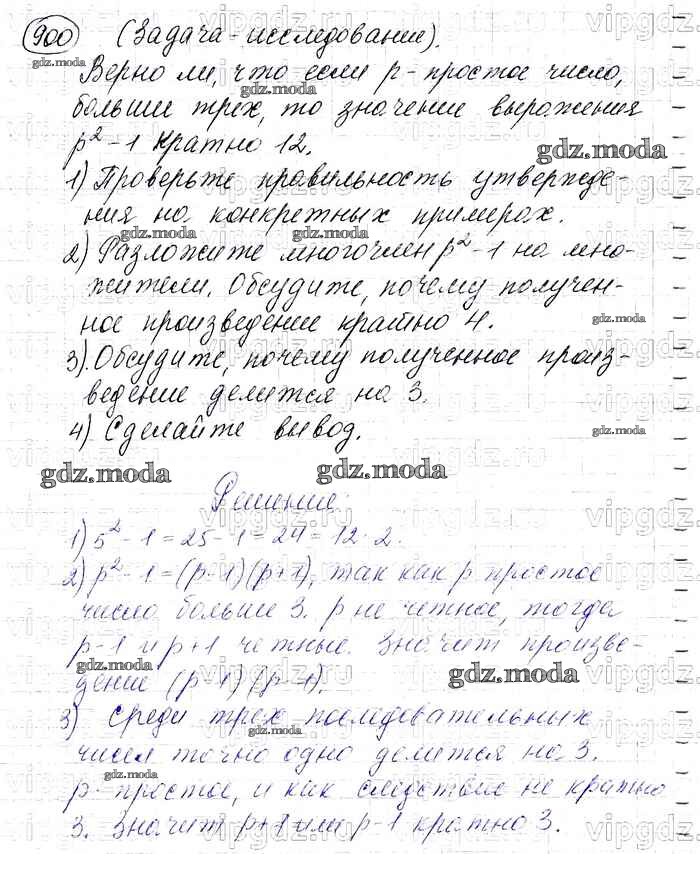 900 (Задача-исследование).
Верно ли, что если p- простое число,
больше трех, то значение выражения
p²-1 кратно 12.
1) Проверьте правильность утвержде-
ния на конкретных примерах.
2) Разложите многочлен p²-1 на мно-
жители. Обсудите, почему получен-
ное произведение кратно 4.
3). Обсудите, почему полученное произ-
ведение делится на 3.
4) Сделайте вывод.
Решение.
1) 5²-1=25-1=24=12·2.
2) p²-1=(p-1)(p+1), так как p простое
число больше 3. p не четное, тогда
p-1 и p+1 четные. Значит произве-
дение (p-1)(p-1).
3) Среди трех последовательных
чисел точно одно делится на 3.
p-простое, и как следствие не кратно
3. Значит p+1 или p-1 кратно 3.
gdz.moda
vipgdz.ru